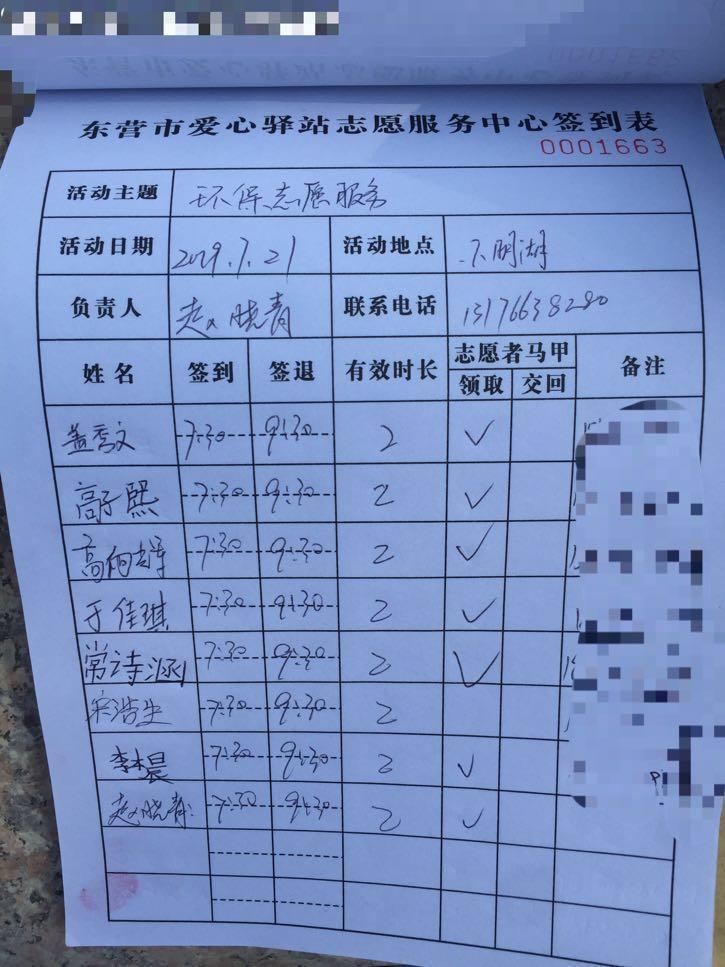 东营市爱心驿站志愿服务中心签到表
0001663
活动主题 环保志愿服务
活动日期 2019.7.21 活动地点 明湖
负责人 赵晓青 联系电话 13176638280
姓名 签到 签退 有效时长 志愿者马甲 备注
领取 交回
盖秀文 7:30 9:30 2 ✓
高子熙 7:30 9:30 2 ✓
高向雄 7:30 9:30 2 ✓
于佳琪 7:30 9:30 2 ✓
常诗涵 7:30 9:30 2 ✓
宋浩生 7:30 9:30 2
李木晨 7:30 9:30 2 ✓
赵晓青 7:30 9:30 2 ✓